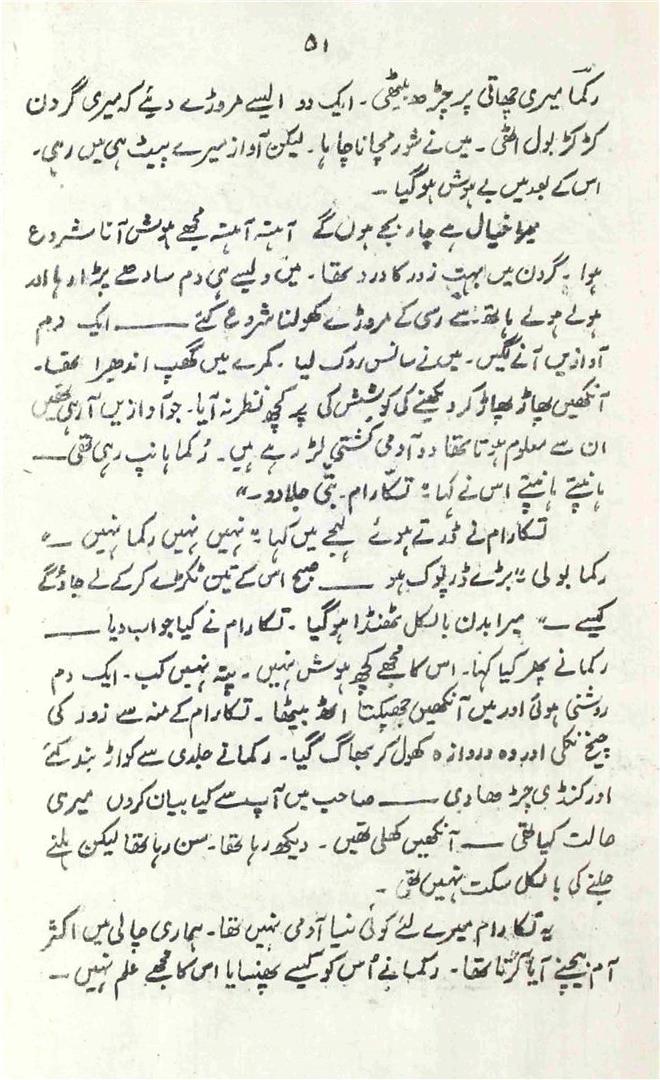 ۵۱
رکما میری چھاتی پر چڑھ بیٹھی۔ ایک دو ایسے مروڑے دیئے کہ میری گردن
کڑ کڑ بول اٹھی۔ میں نے شور مچانا چاہا۔ لیکن آواز میرے پیٹ ہی میں رہی۔
اس کے بعد میں بے ہوش ہوگیا۔
میرا خیال ہے چار بجے ہوں گے آہستہ آہستہ مجھے ہوش آنا شروع
ہوا۔ گردن میں بہت زور کا درد تھا۔ میں ویسے ہی دم سادھے پڑا رہا اور
ہولے ہولے ہاتھ سے رسی کے مروڑے کھولنا شروع کئے ــــــ ایک دم
آوازیں آنے لگیں۔ میں نے سانس روک لیا۔ کمرے میں گھپ اندھیرا تھا۔
آنکھیں پھاڑ پھاڑ کر دیکھنے کی کوشش کی پر کچھ نظر نہ آیا۔ جو آوازیں آرہی تھیں
ان سے معلوم ہوتا تھا دو آدمی کشتی لڑ رہے ہیں۔ رُکما ہانپ رہی تھی ــــ
ہانپتے ہانپتے اس نے کہا "تکارام۔ بتّی جلا دو۔"
تکارام نے ڈرتے ہوئے لہجے میں کہا "نہیں نہیں رکما نہیں ــ"
رکما بولی "بڑے ڈرپوک ہو ــــــ صبح اس کے تین ٹکڑے کرکے لے جاؤگے
کیسے ــ" میرا بدن بالکل ٹھنڈا ہوگیا۔ تکارام نے کیا جواب دیا ــــــ
رکما نے پھر کیا کہا۔ اس کا مجھے کچھ ہوش نہیں۔ پتہ نہیں کب۔ ایک دم
روشنی ہوئی اور میں آنکھیں جھپکتا اٹھ بیٹھا۔ تکارام کے منہ سے زور کی
چیخ نکلی اور وہ دروازہ کھول کر بھاگ گیا۔ رکما نے جلدی سے کواڑ بند کئے
اور کنڈی چڑھا دی ــــــ صاحب میں آپ سے کیا بیان کروں میری
حالت کیا تھی ــــ آنکھیں کھلی تھیں۔ دیکھ رہا تھا۔ سن رہا تھا لیکن ہلنے
جلنے کی بالکل سکت نہیں تھی۔
یہ تکارام میرے لئے کوئی نیا آدمی نہیں تھا۔ ہماری چالی میں اکثر
آم بیچنے آیا کرتا تھا۔ رکما نے اُس کو کیسے پھنسایا اس کا مجھے علم نہیں ــ